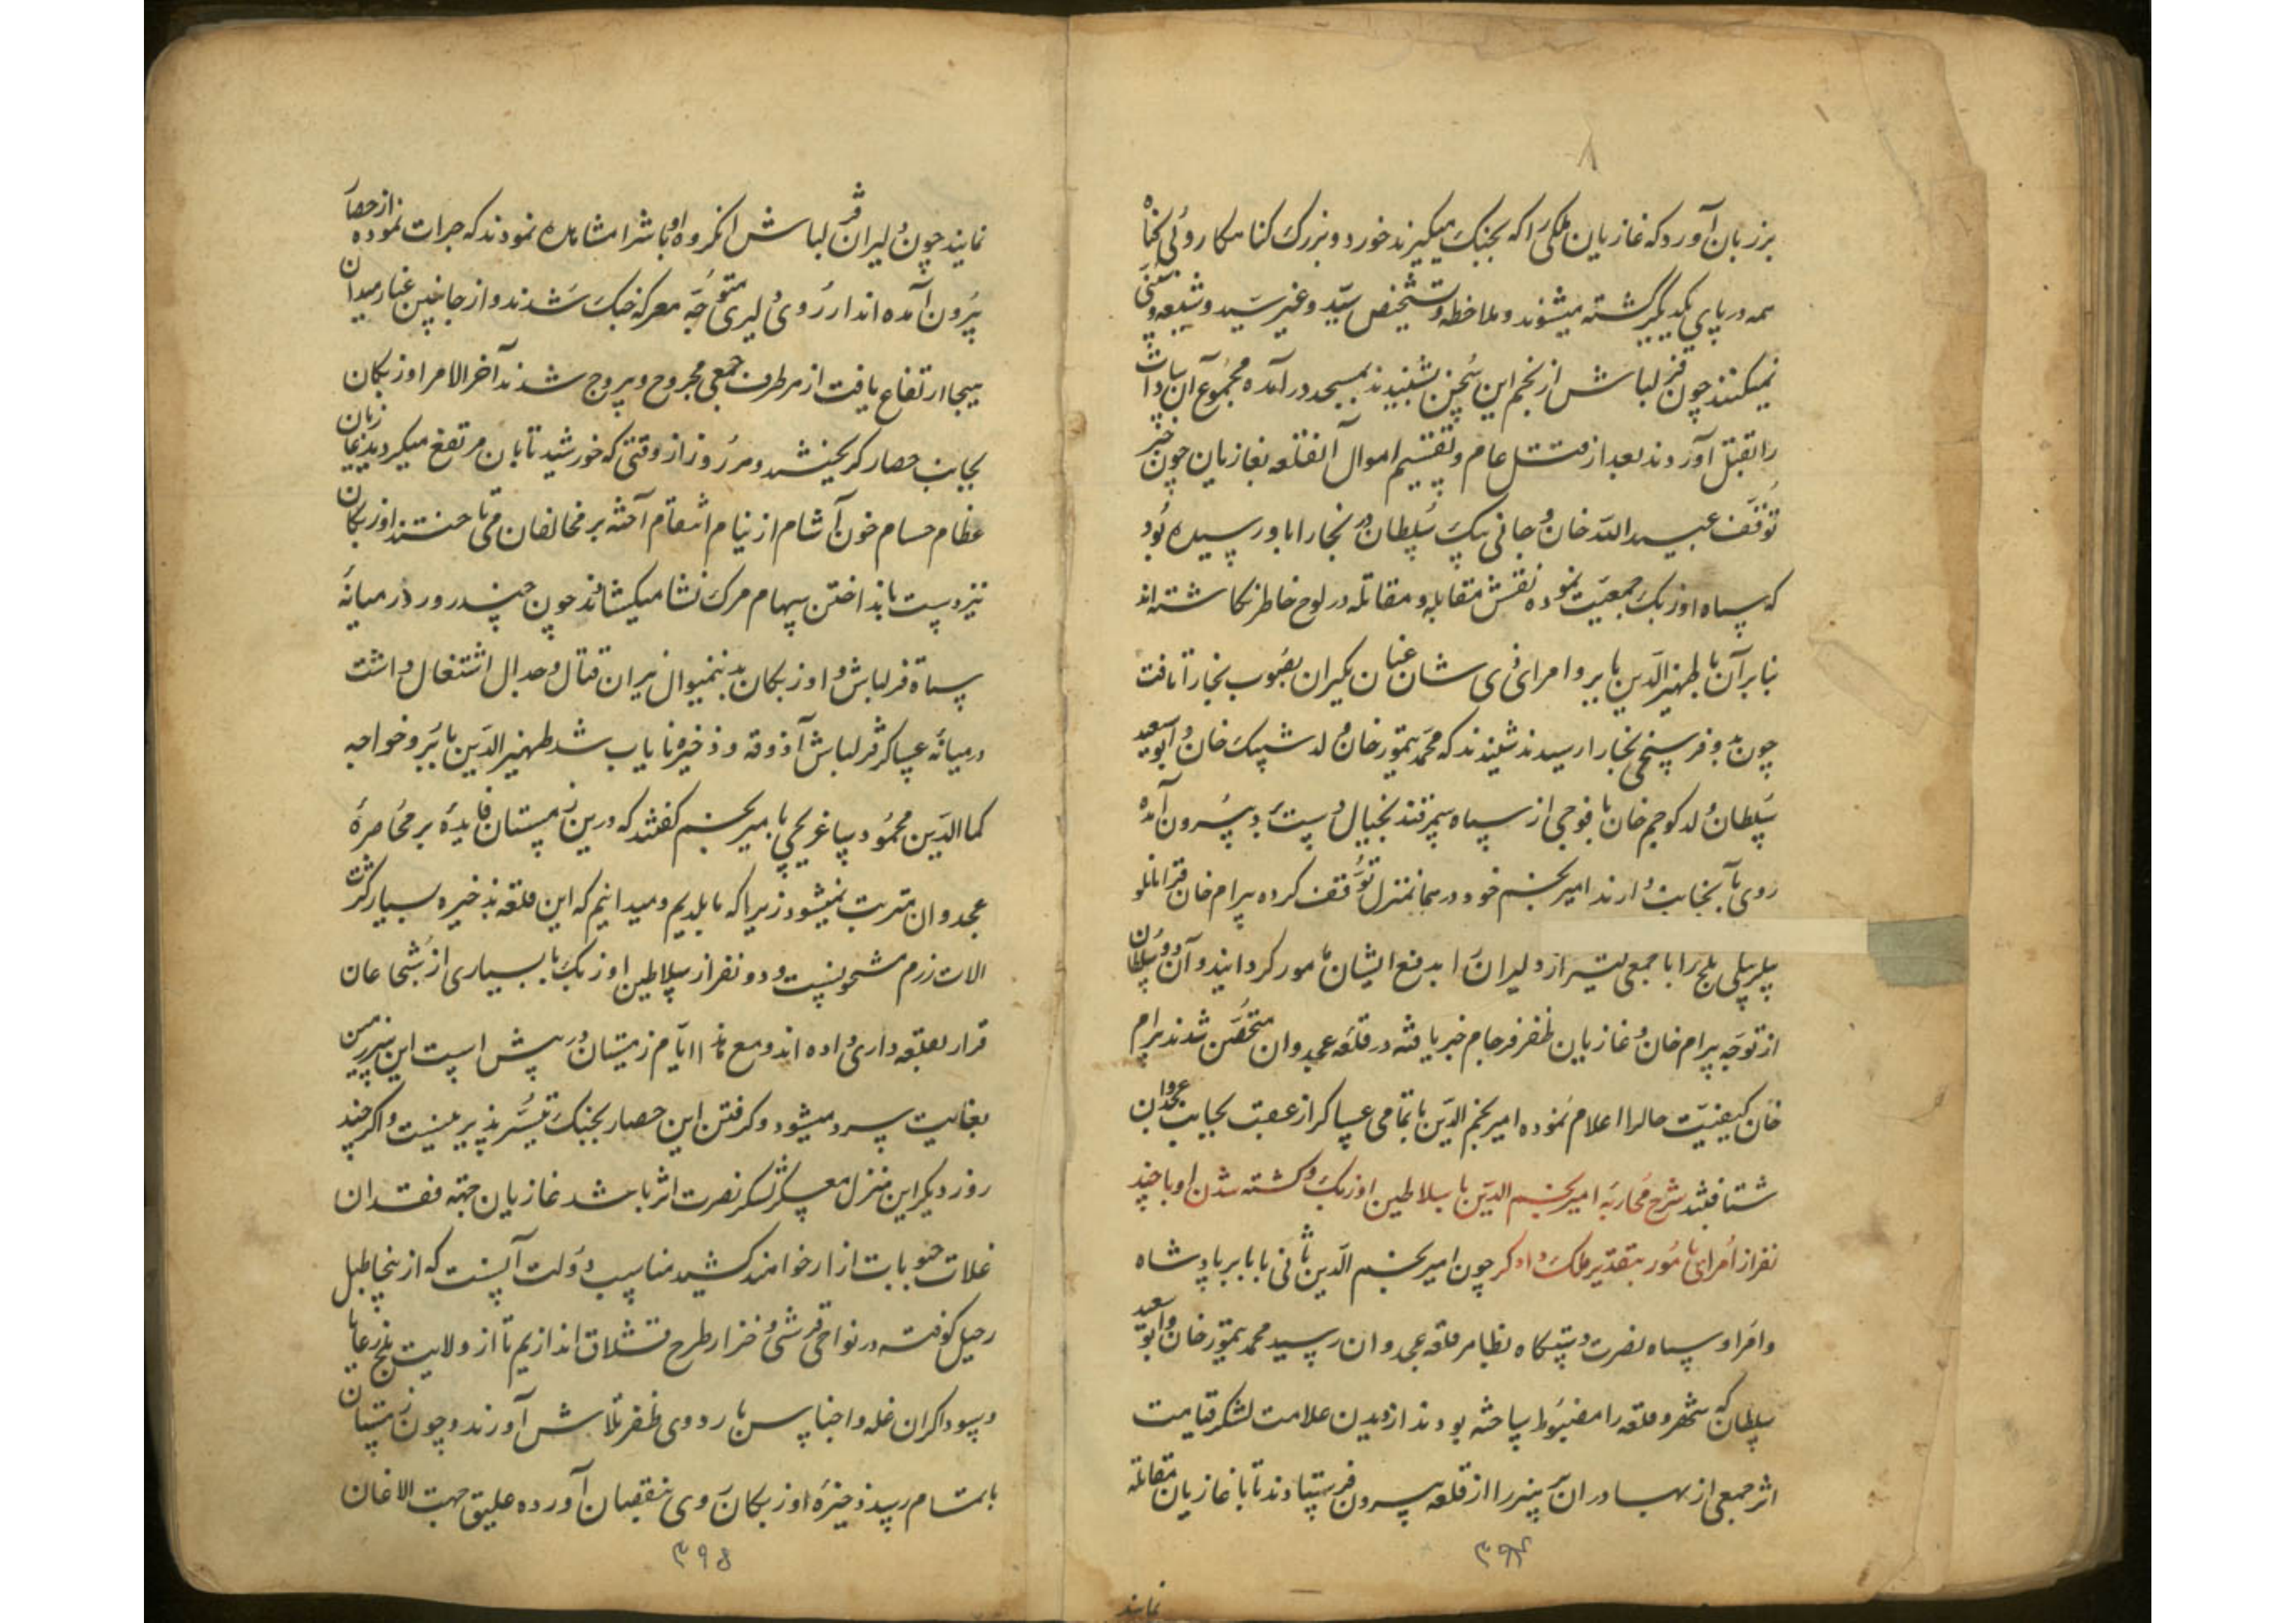 بر زبان آورد که غازیان ملکی را که بجنک میکیرند خورد و بزرک کناهکار و بی کناه
همه در پای یکدیکر کشته میشوند و ملاحظه و تشخیص سید و غیر سید و شیعه و سنی
نمیکنند چون قزلباش از نجم این سخن شنیدند بمسجد در آمده مجموع آن سادات
را بقتل آوردند بعد از قتل عام و تقسیم اموال آنقلعه بغازیان چون خبر
توقف عبیدالله خان و جانی بیک سلطان در بخارا باو رسیده بود
که سپاه اوزبک جمعیت نموده نقش مقابله و مقاتله در لوح خاطر نکاشته‌اند
بنابر آن با ظهیرالدین بابر و امرای ذی شان عنان یکران بصوب بخارا تافت
چون بدو فرسخی بخارا رسیدند شنیدند که محمد تیمور خان ولد شیبک خان و ابو سعید
سلطان ولد کوجم خان با فوجی از سپاه سمرقند بخیال دست برد بیرون آمده
روی بآنجانب دارند امیر نجم خود در همانمنزل توقف کرده بیرام خان قرامانلو
بیلربیکی بلخ را با جمعی کثیر از دلیران بدفع ایشان مامور کردانید و آن دو سلطان
از توجه بیرام خان و غازیان ظفر فرجام خبر یافته در قلعه عجدوان متحصن شدند بیرام
خان کیفیت حال را اعلام نموده امیر نجم الدین با تمامی عساکر از عقب بجانب عجدوان
شتافتند شرح محاربه امیر نجم الدین با سلاطین اوزبک و کشته شدن او با چند
نفر از امرای نامور بتقدیر ملک داور چون امیر نجم الدین ثانی با بابر پادشاه
و امرا و سپاه نصرت دستکاه بظاهر قلعه عجدوان رسید محمد تیمور خان و ابو سعید
سلطان که شهر و قلعه را مضبوط ساخته بودند از دیدن علامت لشکر قیامت
اثر جمعی از بهادران را از قلعه بیرون فرستادند تا با غازیان مقاتله
۳۹۴
نمایند
نمایند چون دلیران قزلباش آنکروه اوباش را مشاهده نمودند که جرات نموده از حصار
بیرون آمده‌اند از روی دلیری متوجه معرکه جنک شدند و از جانبین غبار میدان
هیجا ارتفاع یافت از هر طرف جمعی مجروح و بیروح شدند آخر الامر اوزبکان
بجانب حصار کریختند و هر روز از وقتی که خورشید تابان مرتفع میکردید غازیان
عظام حسام خون آشام از نیام انتقام آخته بر مخالفان می تاختند اوزبکان
نیز دست بانداختن سهام مرک نشان میکشادند چون چند روز در میانه
سپاه قزلباش و اوزبکان بدینمنوال نیران قتال و جدال اشتغال داشت
در میانه عساکر قزلباش آذوقه و ذخیره نایاب شد ظهیرالدین بابر و خواجه
کمال الدین محمود ساغرجی بامیر نجم کفتند که درین زمستان فایده بر محاصره
عجدوان مترتب نمیشود زیرا که ما بلدیم و میدانیم که این قلعه بذخیره بسیار و کثرت
آلات رزم مشحونست و دو نفر از سلاطین اوزبک با بسیاری از شجاعان
قرار بقلعه داری داده‌اند و مع هذا ایام زمستان در پیش است این سرزمین
بغایت سرد میشود و کرفتن این حصار بجنک تیسر پذیر نیست و اکر چند
روز دیکر این منزل معسکر لشکر نصرت اثر باشد غازیان جهة فقدان
غلات و حبوبات آزار خواهند کشید مناسب دولت آنست که ازینجا طبل
رحیل کوفته در نواحی قرشی و خزار طرح قشلاق اندازیم تا از ولایت بلخ رعایا
و سوداکران غله و اجناس باردوی ظفر تلاش آورند و چون زمستان
باتمام رسید ذخیره اوزبکان روی بنقصان آورده علیق جهت الاغان
۳۹۵